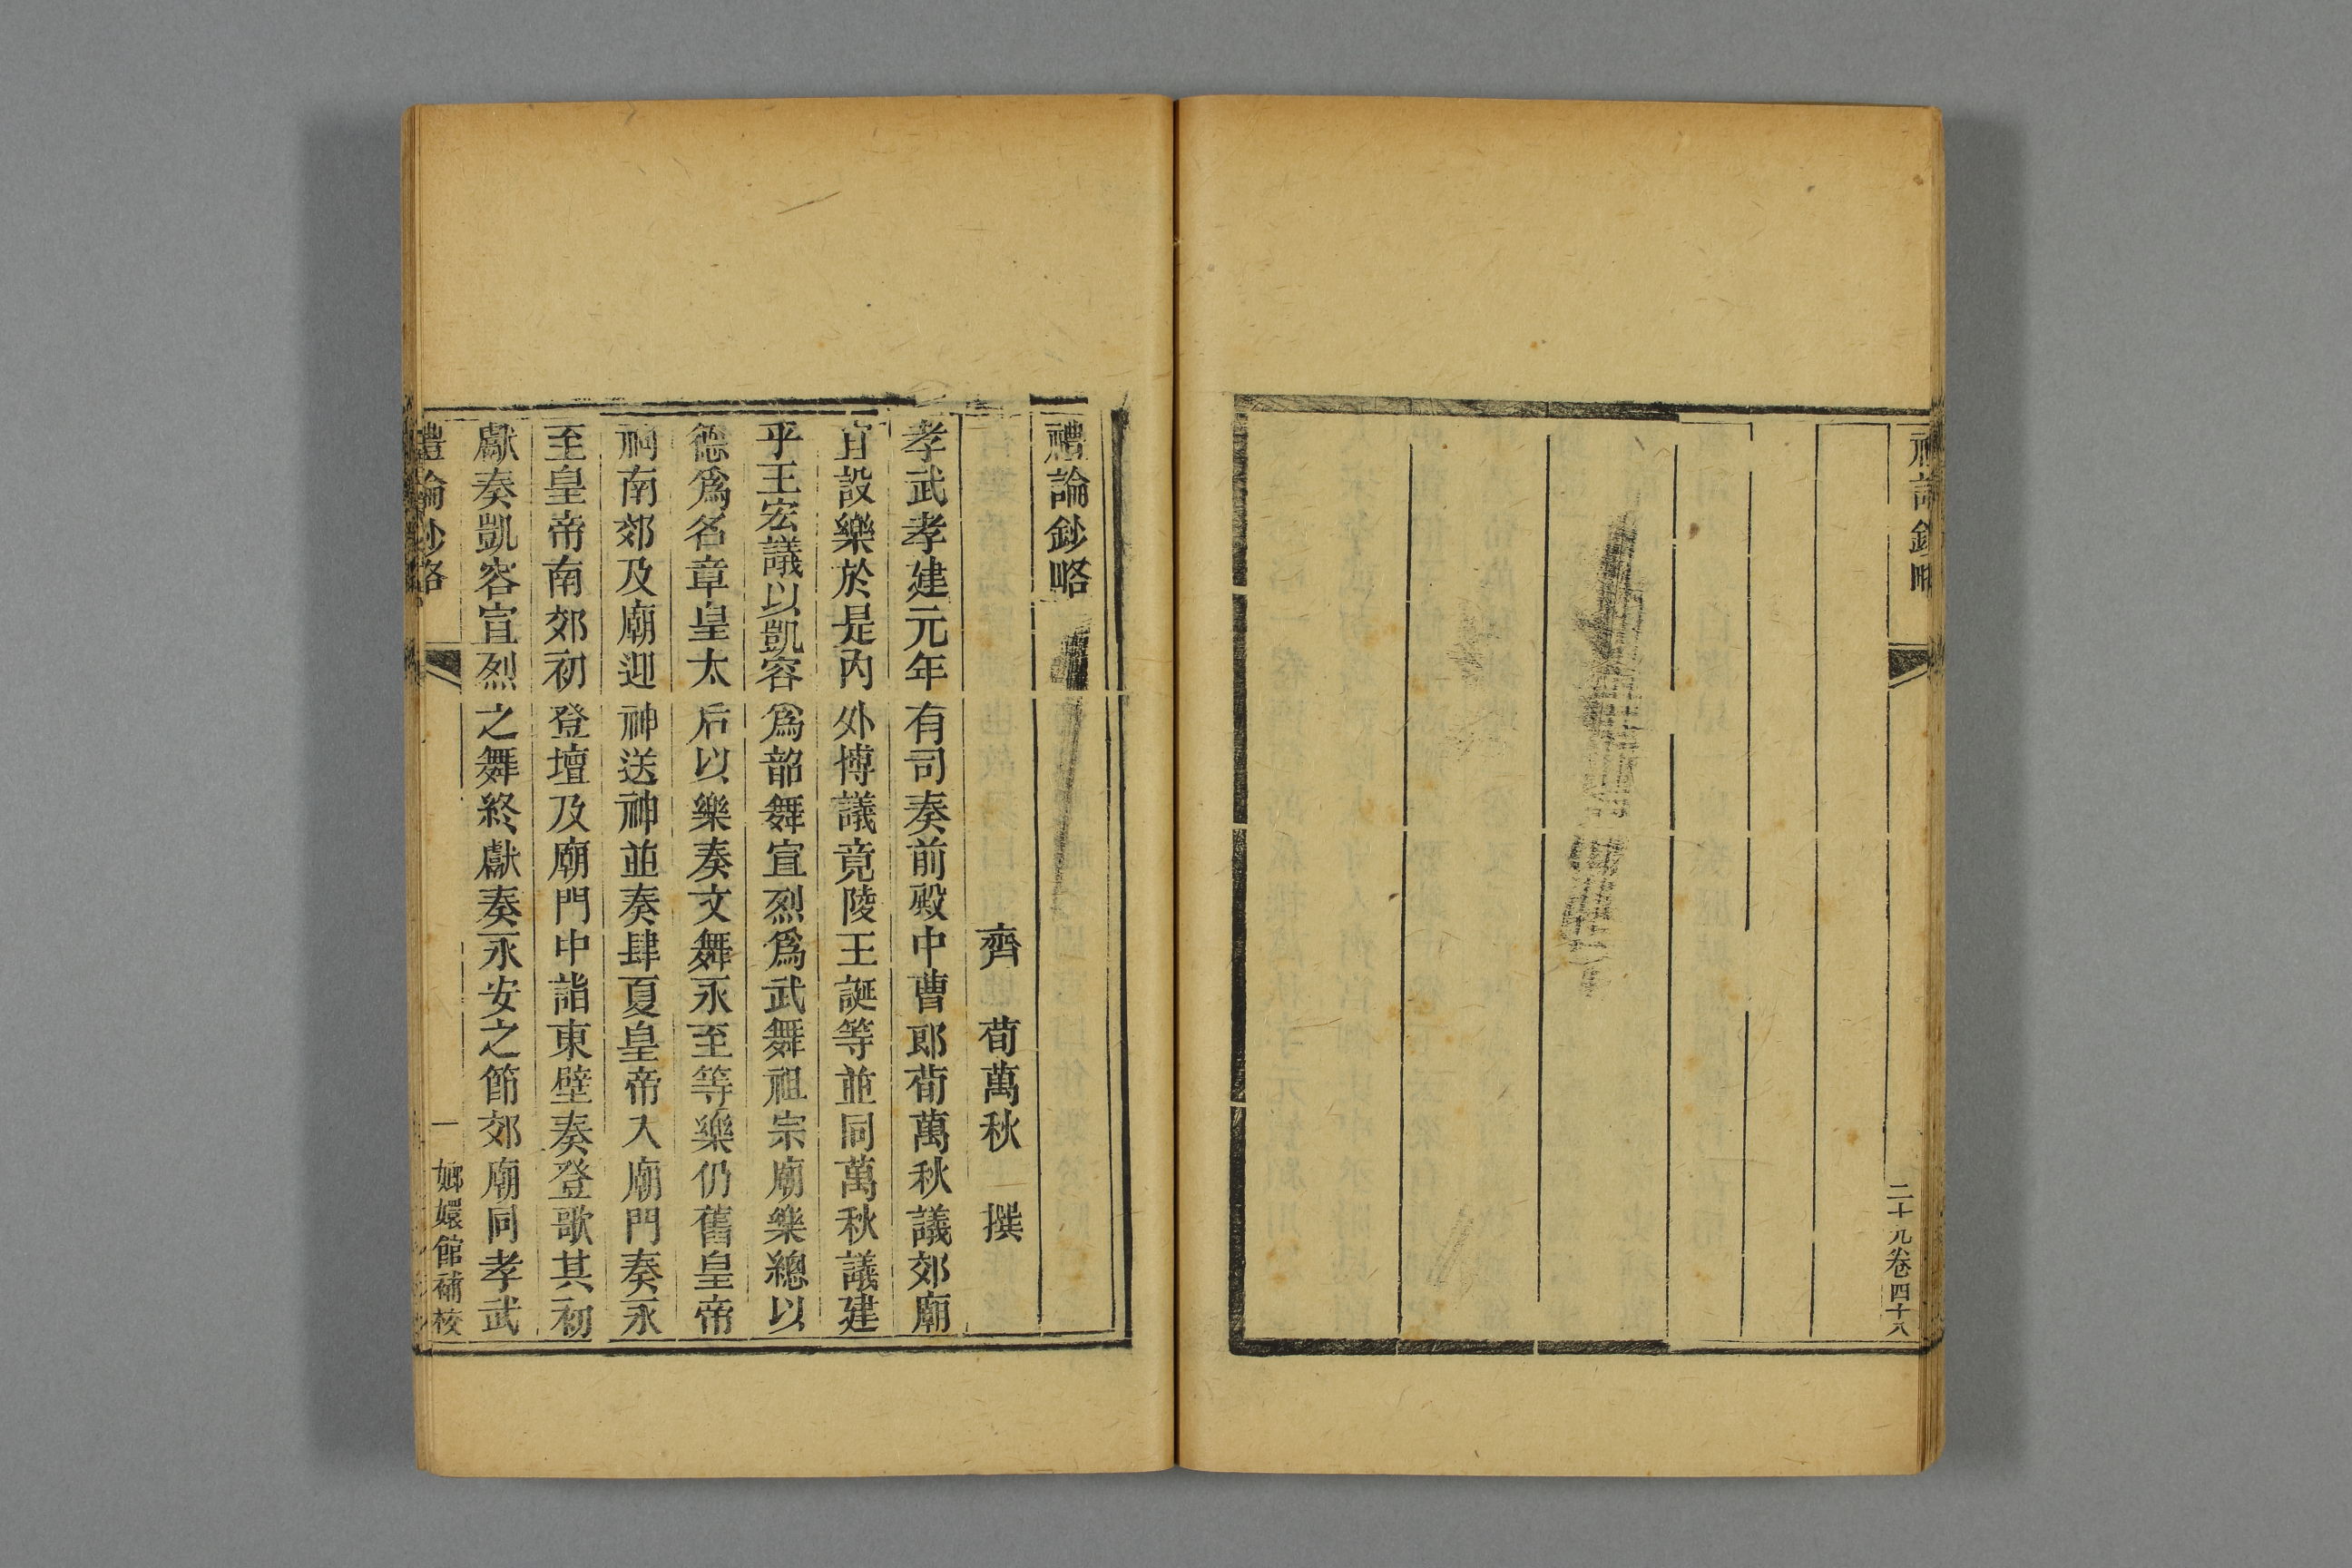 禮論鈔略
二十九卷四十八
禮論鈔略
齊 荀萬秋 撰
孝武孝建元年有司奏前殿中曹郎荀萬秋議郊廟
宜設樂於是內外博議竟陵王誕等並同萬秋議建
乎王宏議以凱容爲韶舞宣烈爲武舞祖宗廟樂總以
德爲名章皇太后以樂奏文舞永至等樂仍舊皇帝
祠南郊及廟迎神送神並奏肆夏皇帝入廟門奏永
至皇帝南郊初登壇及廟門中詣東壁奏登歌其初
獻奏凱容宣烈之舞終獻奏永安之節郊廟同孝武
禮論鈔略
一
嫏嬛館補校